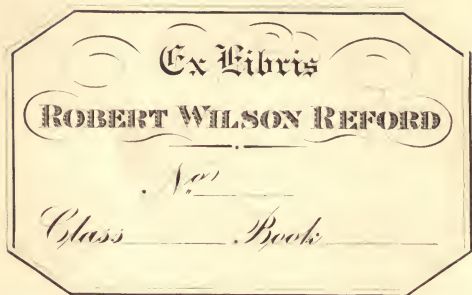 Ex Libris
ROBERT WILSON REFORD
Nos
Class Book